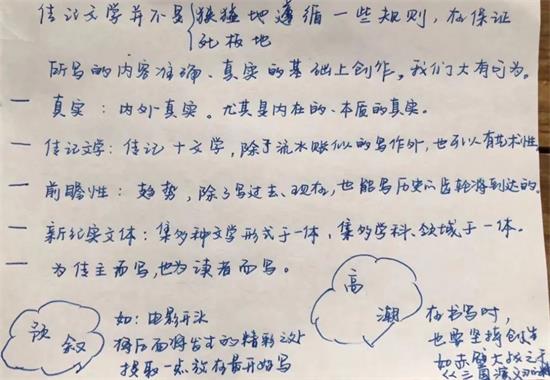 传记文学并不是 猥猛地遵循一些规则，在保证
死板地
所写的内容准确、真实的基础上创作，我们大有可为。
一 真实：内外真实。尤其是内在的、本质的真实。
一 传记文学：传记＋文学，除了流水账似的写作外，也可以有艺术性。
一 前瞻性：趋势，除了写过去、现在，也能写历史的齿轮将到达的。
一 新纪实文体：集多种文学形式于一体，集多学科、领域于一体。
一 为传主而写，也为读者而写。
预叙
如：电影开头
将后面将发生的精彩之处
提取一点放在最开始写
高潮
在书写时，
也要坚持创造
如赤壁大战之于
《三国演义》